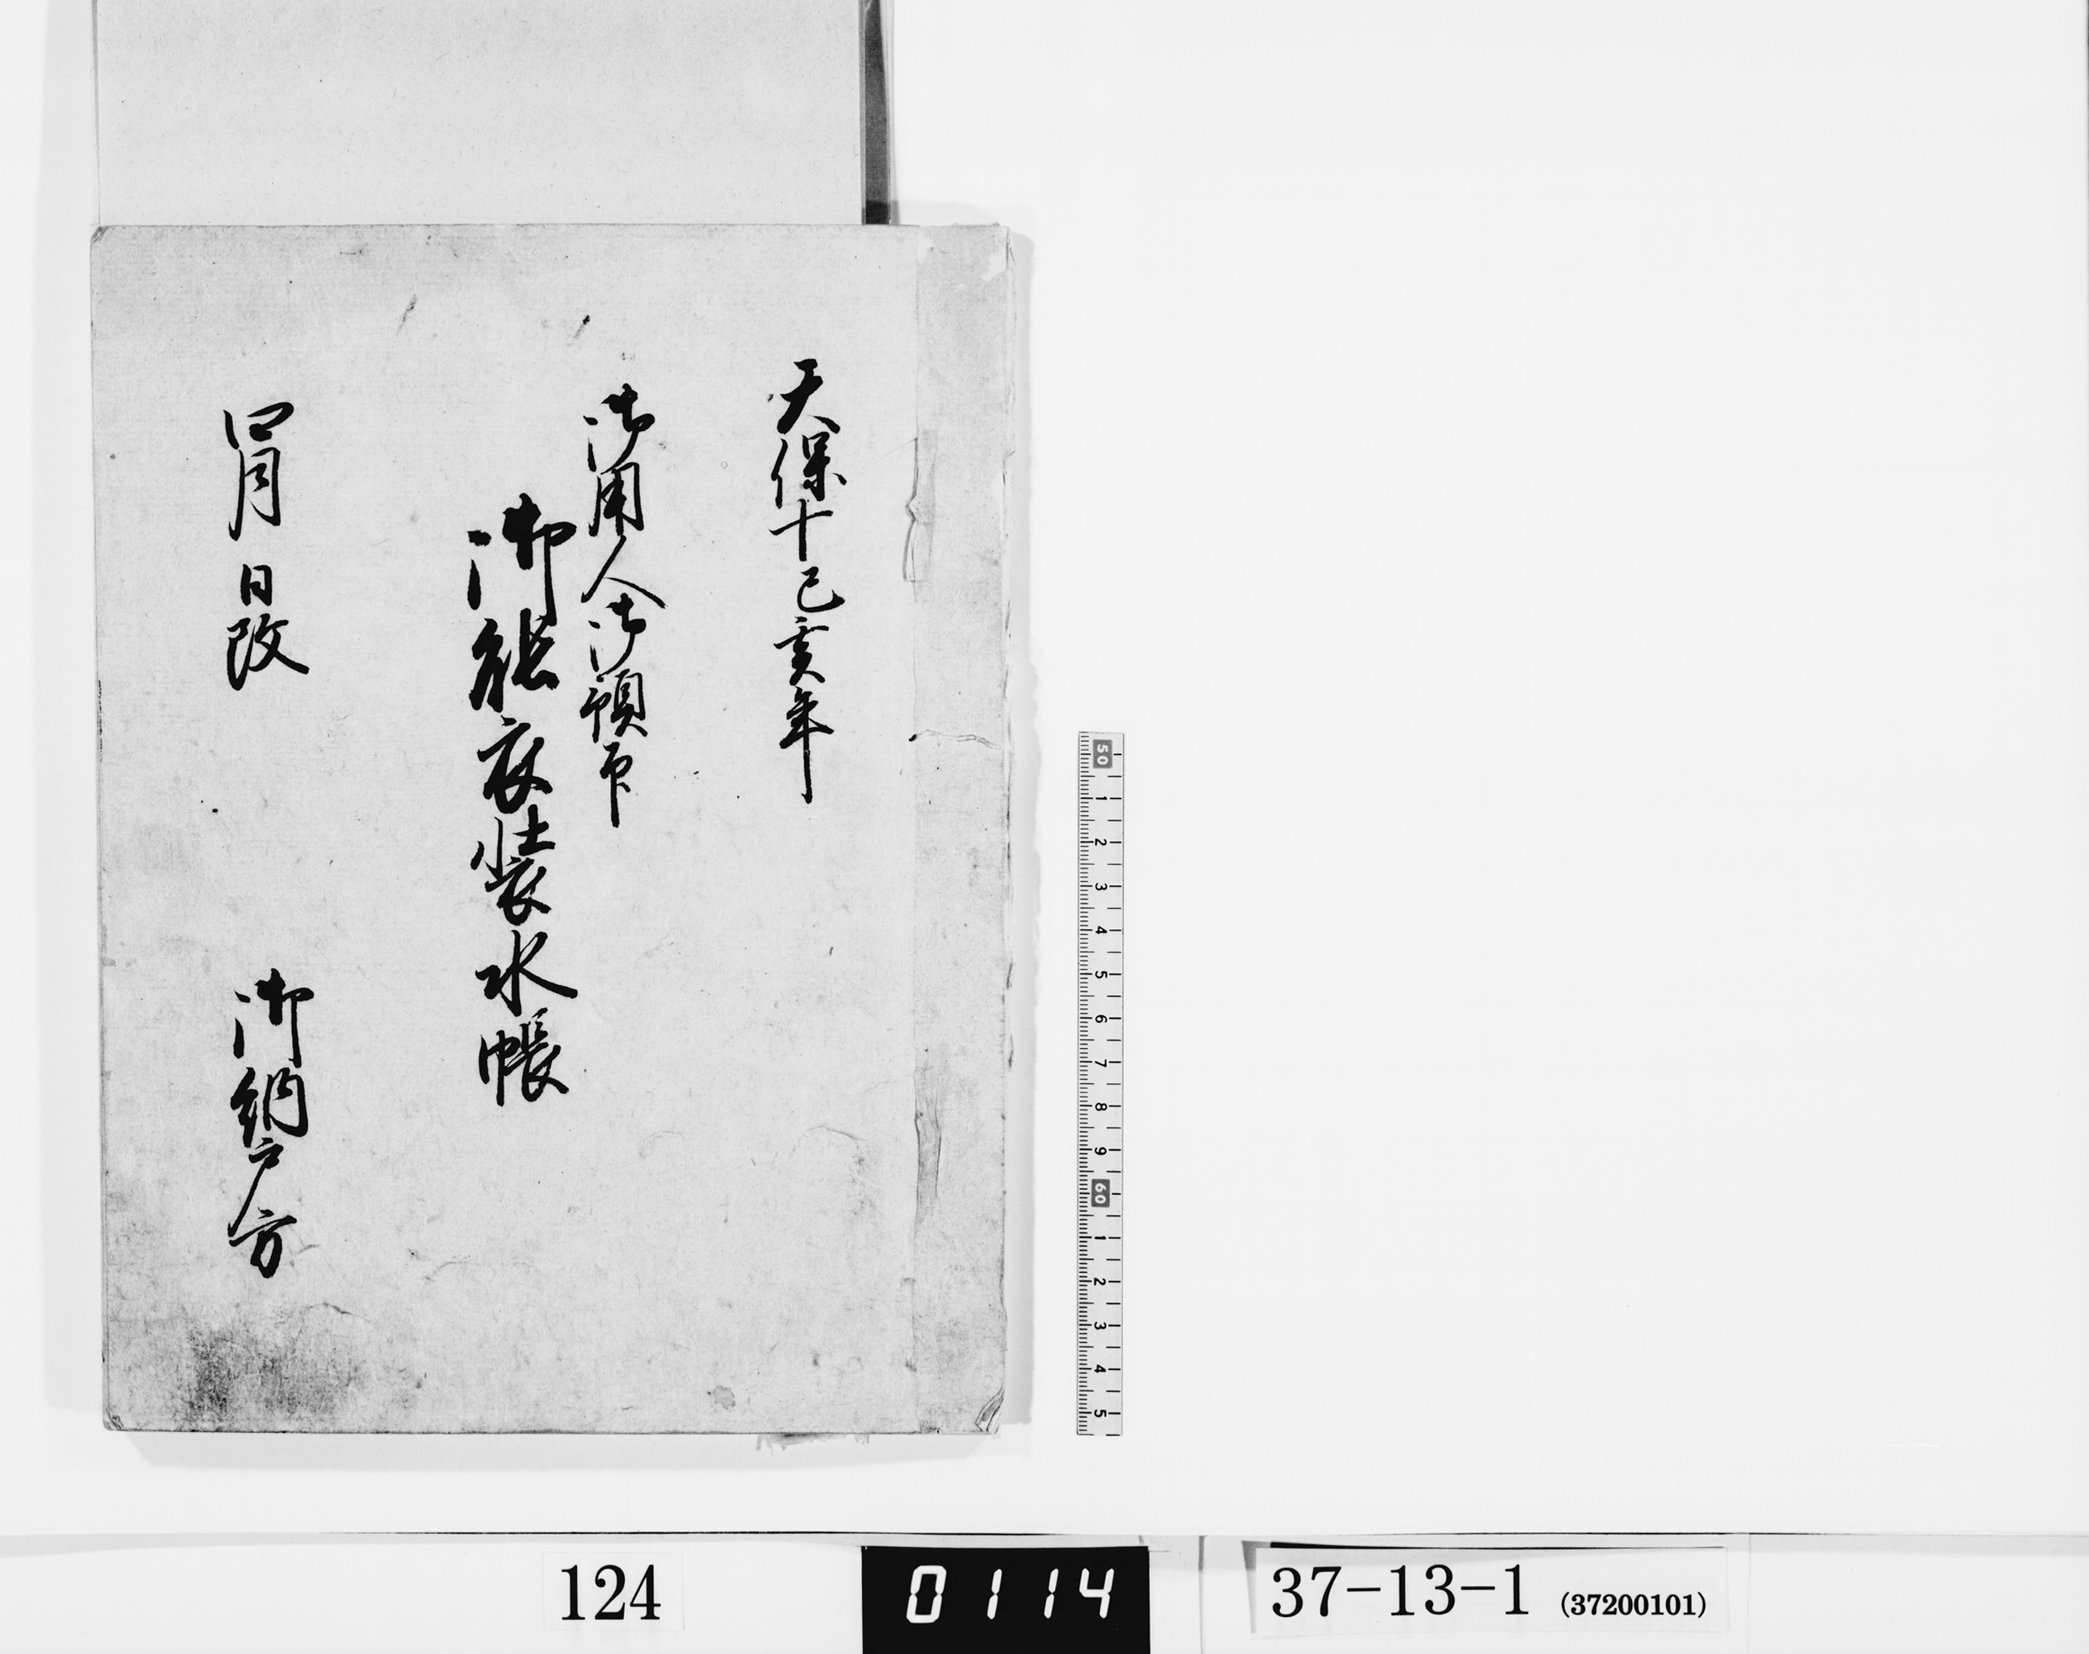 天保十己亥年
御用人御預印
御能衣装水帳
四月 日改
御納戸方
50 1 2 3 4 5 6 7 8 9 60 1 2 3 4 5
124
0114
37-13-1 (37200101)